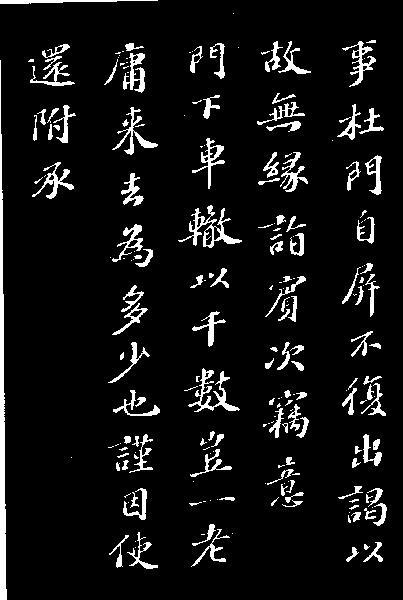 事杜門自屏不復出謁以
故無緣詣賓次竊意
門下車轍以千數豈一老
庸来去為多少也謹因使
還附承